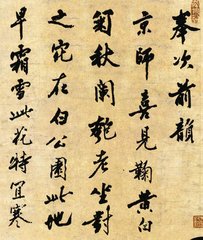 奉次前韻
京師喜見鞠黄白
菊秋闌老坐對
之在伯公園此地
早霜雪此花特宜寒